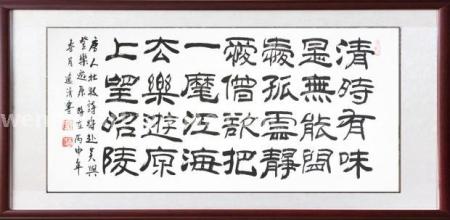 清時有味
是無能閑
愛孤雲靜
愛僧欲把
一麾江海
去樂遊原
上望昭陵
唐人杜牧詩將赴吳興
登樂遊原 時在丙申年
春月